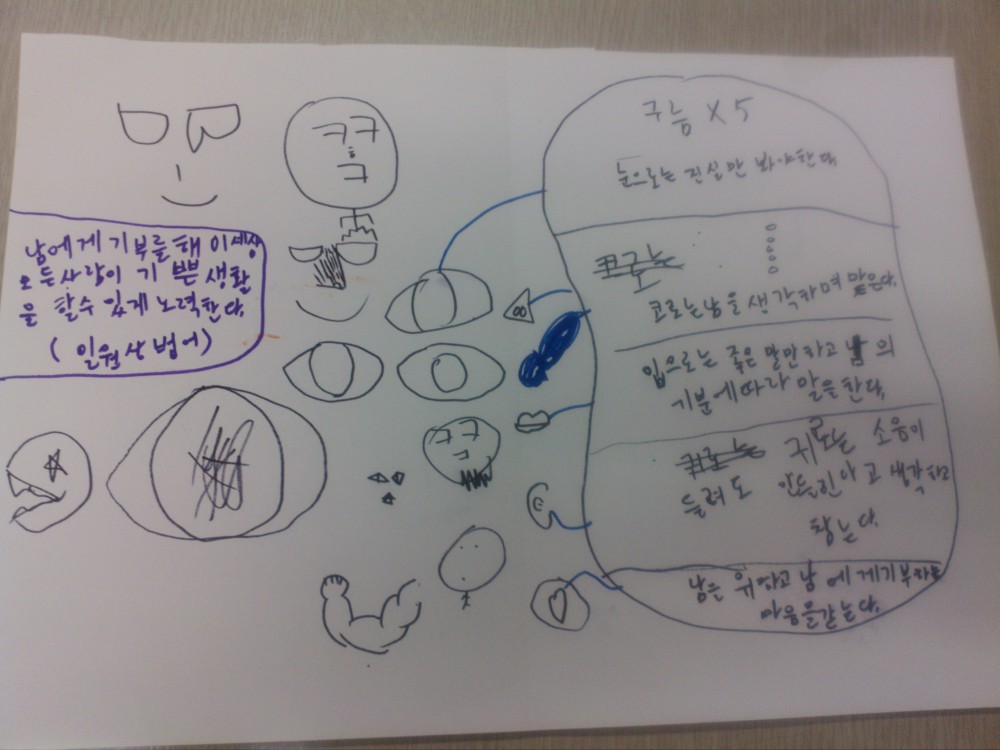 남에게 기부를 해 이세상
모든사람이 기쁜 생활
을 할수 있게 노력한다.
( 일원상 법어)
ㅋㅋ
ㅋ
ㅋㅋ
구능 X 5
눈으로는 진실만 봐야한다.
코로는
코로는남을 생각하며 맡은다.
입으로는 좋은 말만하고 남의
기분에따라 말을한다.
귀로는 소음이
들려도 안들린다고 생각하고
참는다.
남을 위하고 남에게기부하는
마음을갖는다.